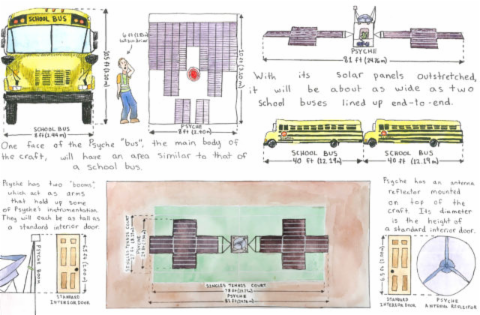 SCHOOL BUS
10.5 ft (3.20m)
SCHOOL BUS
8 ft (2.44m)
PSYCHE
8 ft (2.40m)
One face of the Psyche "bus", the main body of
the craft, will have an area similar to that of
a school bus.
PSYCHE
81 ft (24.76m)
With its solar panels outstretched,
it will be about as wide as two
school buses lined up end-to-end.
SCHOOL BUS
40 ft (12.19m)
SCHOOL BUS
40 ft (12.19m)
Psyche has two "booms",
which act as arms
that hold up some
of Psyche's instrumentation.
They will each be as tall as
a standard interior door.
PSYCHE BOOM
STANDARD
INTERIOR DOOR
SINGLES TENNIS COURT
SINGLES TENNIS COURT
PSYCHE
Psyche has an antenna
reflector mounted
on top of the
craft. Its diameter
is the height of
a standard interior door.
STANDARD
INTERIOR DOOR
PSYCHE
ANTENNA REFLECTOR